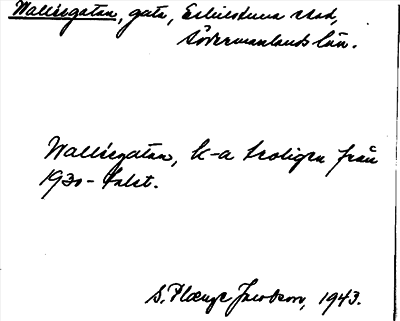 Wallésgatan, gata, Eskilstuna stad,
Södermanlands län.
Wallésgatan, k-a troligen från
1930-talet.
S. Plænge Jacobson, 1943.